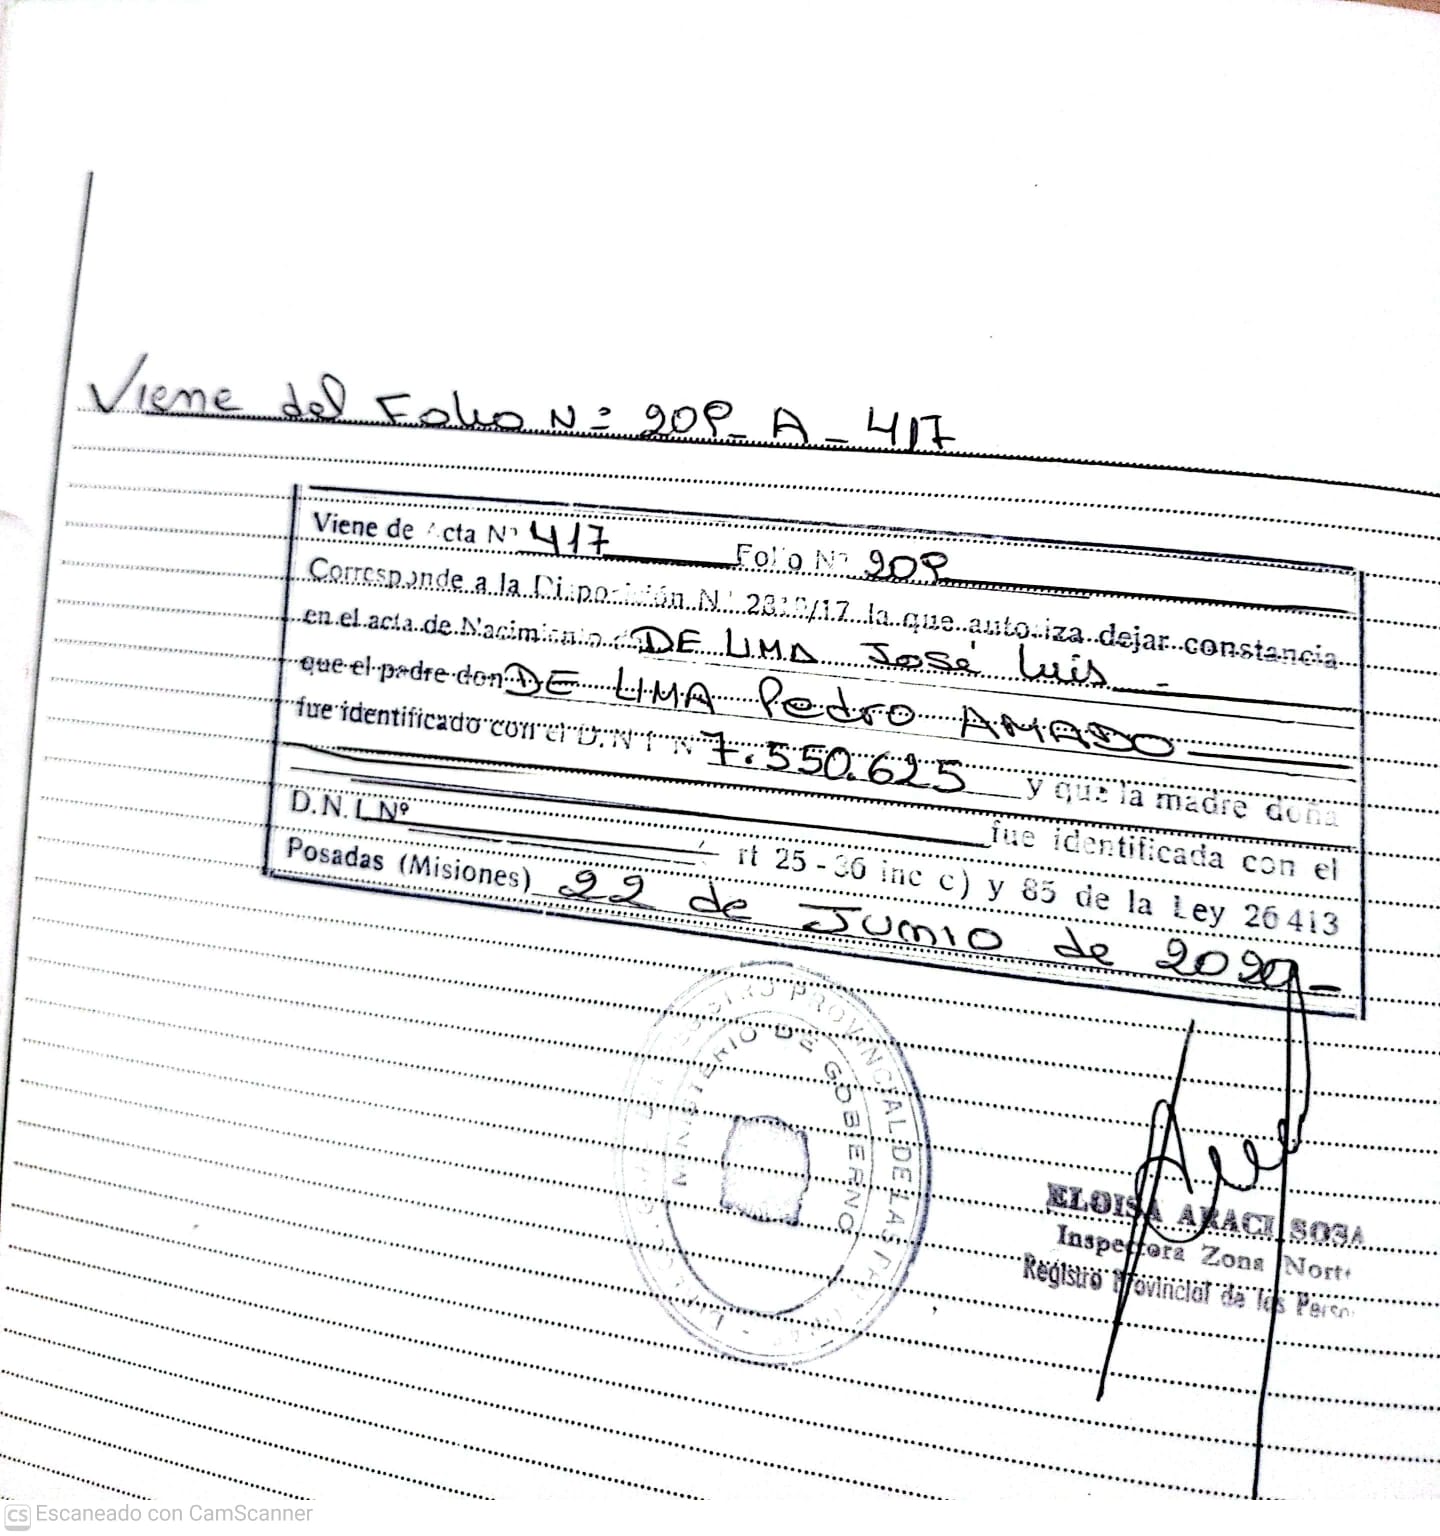 Viene del Folio Nº 209- A- 417
Viene de Acta Nº 417 Folio Nº 209
Corresponde a la Disposición Nº 2818/17 la que autoriza dejar constancia
en el acta de Nacimiento de DE LIMA José Luis -
que el padre don DE LIMA Pedro AMADO
fue identificado con el D.N.I Nº 7.550.625 y que la madre doña
fue identificada con el
D.N.I. Nº rt 25 - 36 inc c) y 85 de la Ley 26 413
Posadas (Misiones) 22 de Junio de 2020-
REGISTRO PROVINCIAL DE LAS
MINISTERIO DE GOBIERNO
ELOISA ARACI SOSA
Inspectora Zona Norte
Registro Provincial de las Perso
CS Escaneado con CamScanner